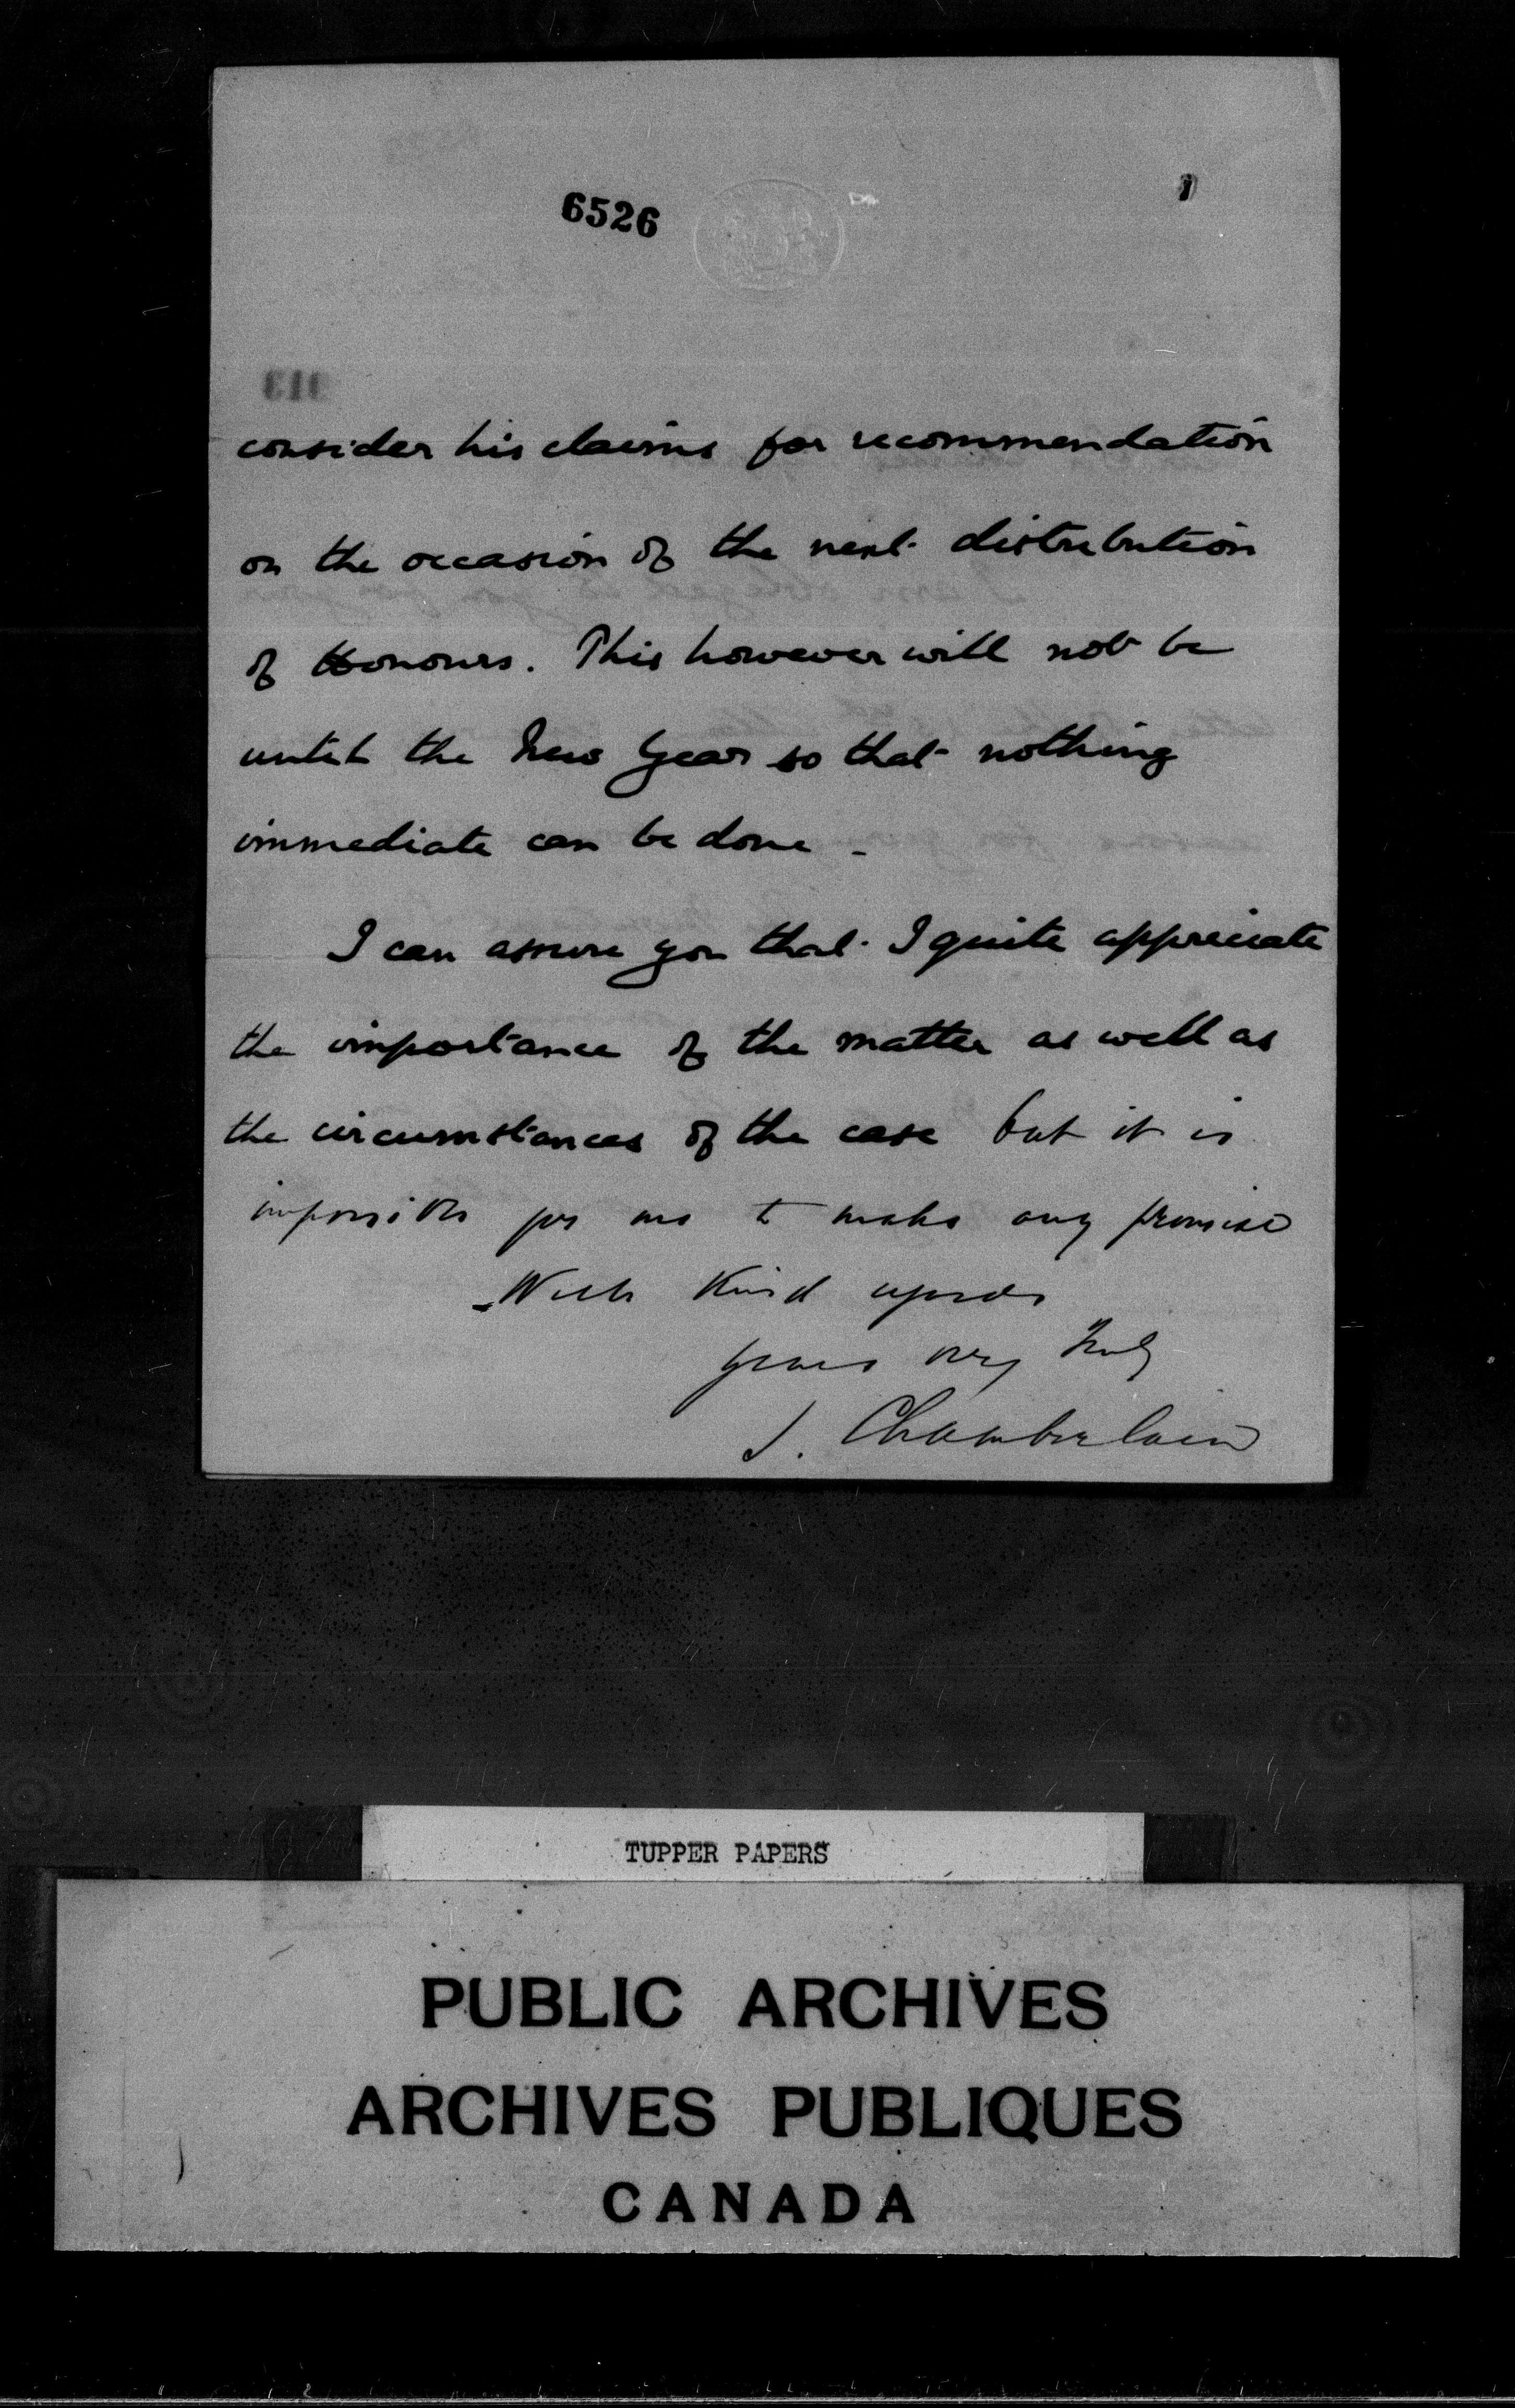 6526
consider his claims for recommendation
on the occasion of the next distribution
of Honours. This however will not be
until the New Year so that nothing
immediate can be done -
I can assure you that I quite appreciate
the importance of the matter as well as
the circumstances of the case but it is
impossible for me to make any promise
With Kind regards
yours very truly
J. Chamberlain
TUPPER PAPERS
PUBLIC ARCHIVES
ARCHIVES PUBLIQUES
CANADA